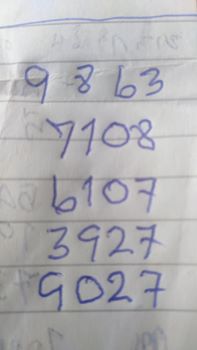 9 863
7108
6107
3927
9027